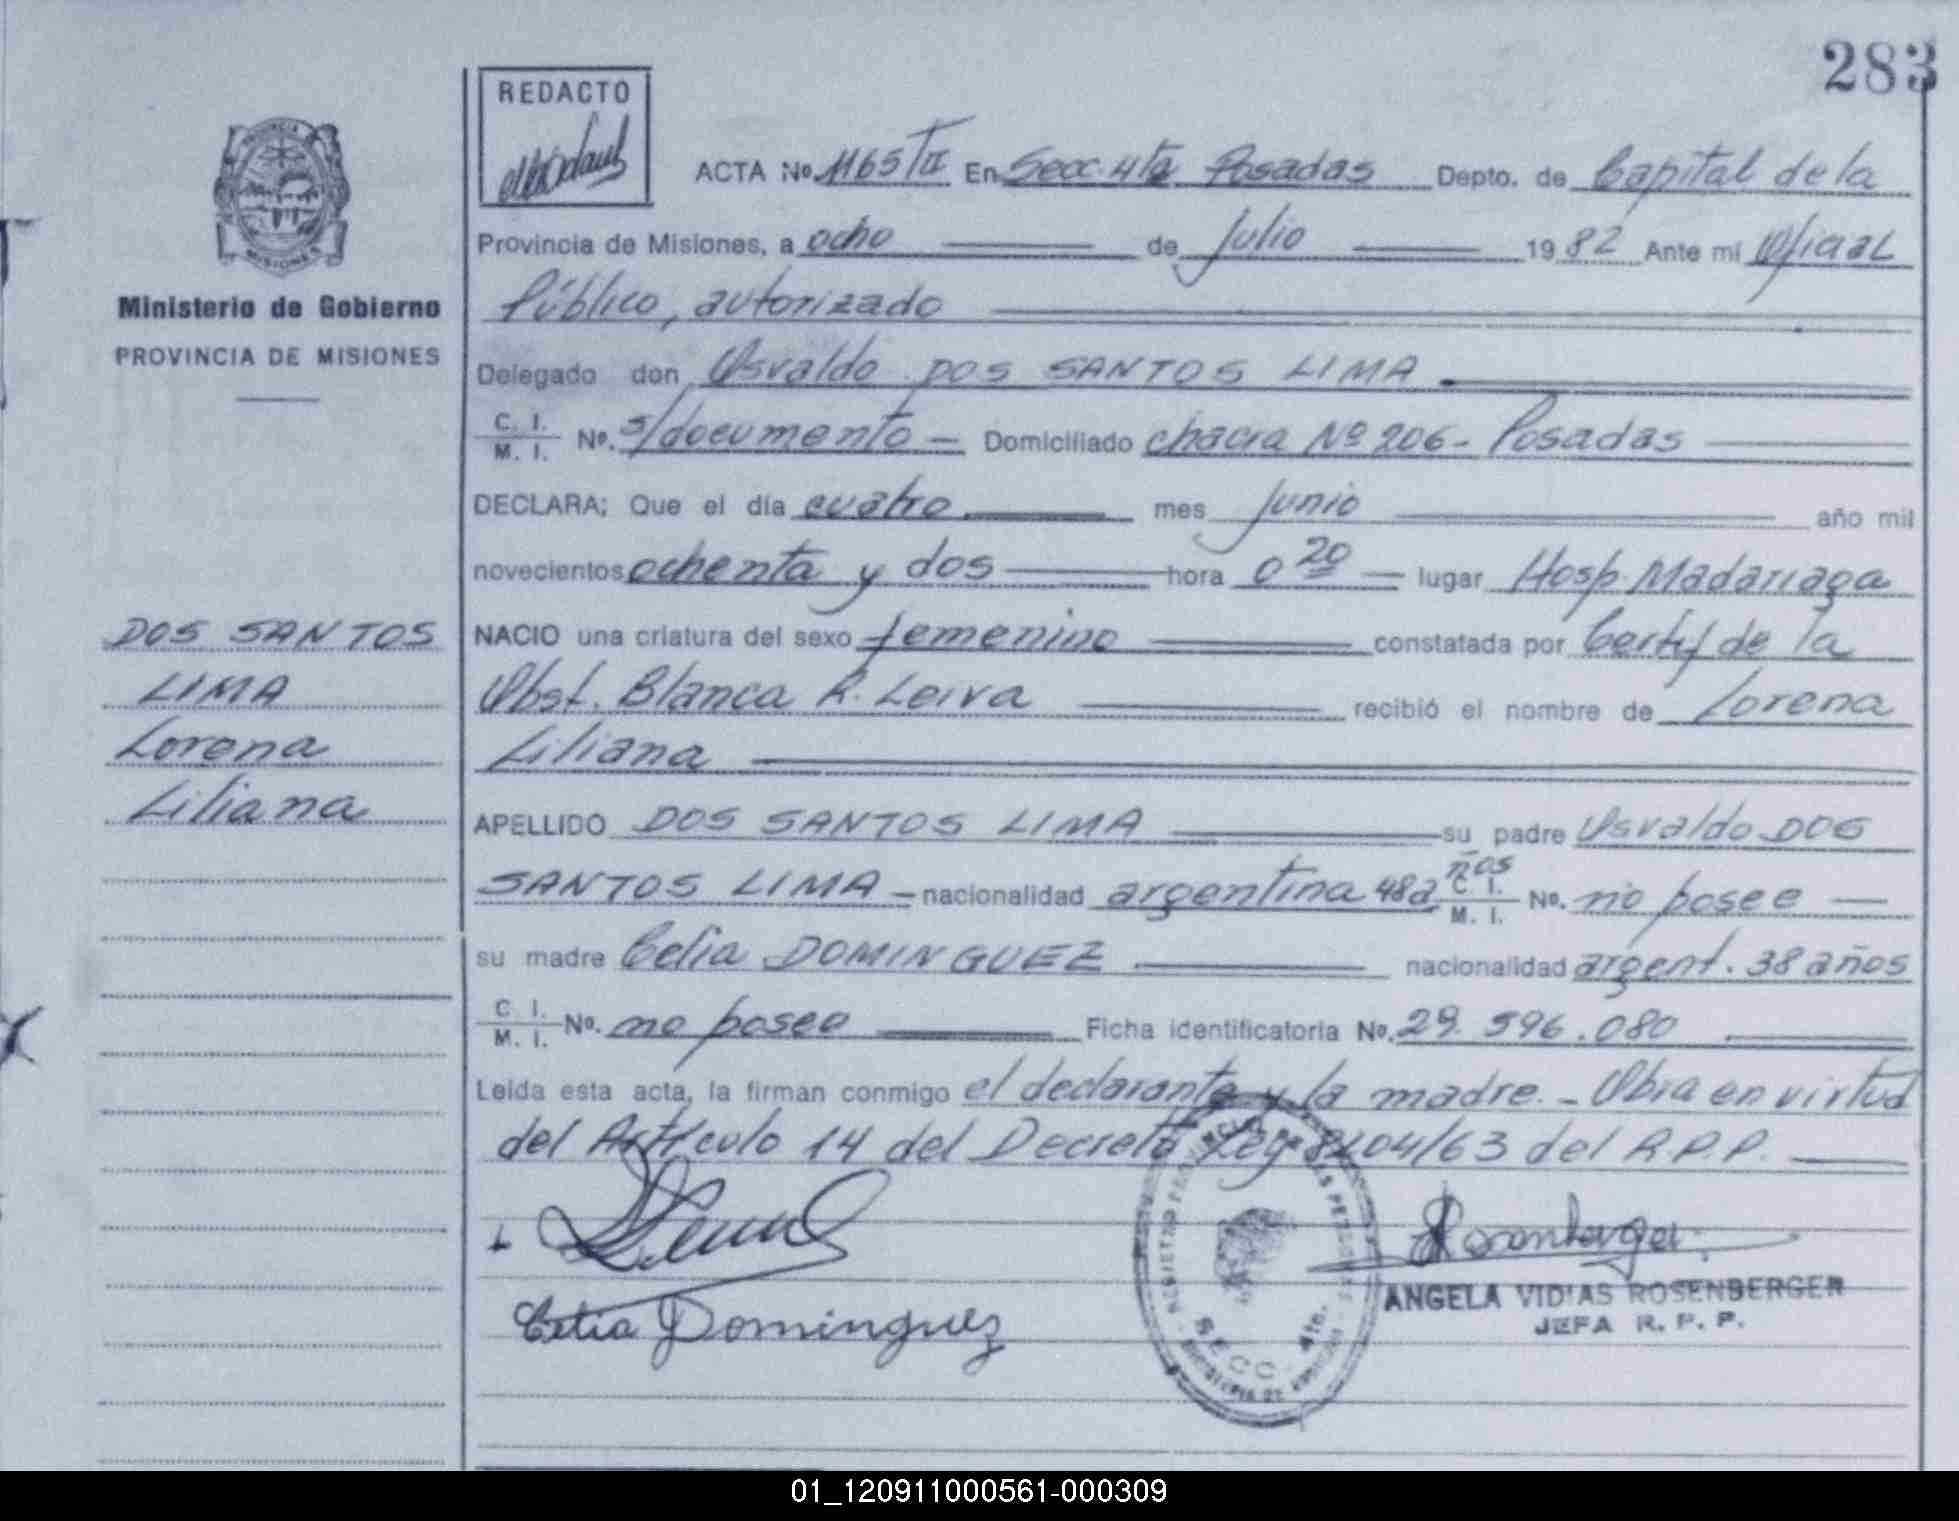 283
REDACTO
PROVINCIA
MISIONES
Ministerio de Gobierno
PROVINCIA DE MISIONES
DOS SANTOS
LIMA
Lorena
Liliana
ACTA Nº 1165/TII En Secc. 4ta Posadas Depto. de Capital de la
Provincia de Misiones, a ocho de Julio 1982 Ante mi Oficial
Público, autorizado
Delegado don Osvaldo DOS SANTOS LIMA
C. I. M. I. Nº. s/documento - Domiciliado chacra Nº 206 - Posadas
DECLARA; Que el día cuatro mes Junio año mil
novecientos ochenta y dos hora 0 20 lugar Hosp. Madariaga
NACIO una criatura del sexo femenino constatada por Certif de la
Obst. Blanca R. Leiva recibió el nombre de Lorena
Liliana
APELLIDO DOS SANTOS LIMA su padre Osvaldo DOS
SANTOS LIMA - nacionalidad argentina 48 años C. I. M. I. Nº. no posee
su madre Celia DOMINGUEZ nacionalidad argent. 38 años
C. I. M. I. Nº. no posee Ficha identificatoria Nº. 29.596.080
Leida esta acta, la firman conmigo el declarante y la madre. - Obra en virtud
del Artículo 14 del Decreto Ley 8204/63 del R.P.P.
Celia Dominguez
SECC. 4ta.
Rosenberger
ANGELA VIDIAS ROSENBERGER
JEFA R. P. P.
01_120911000561-000309